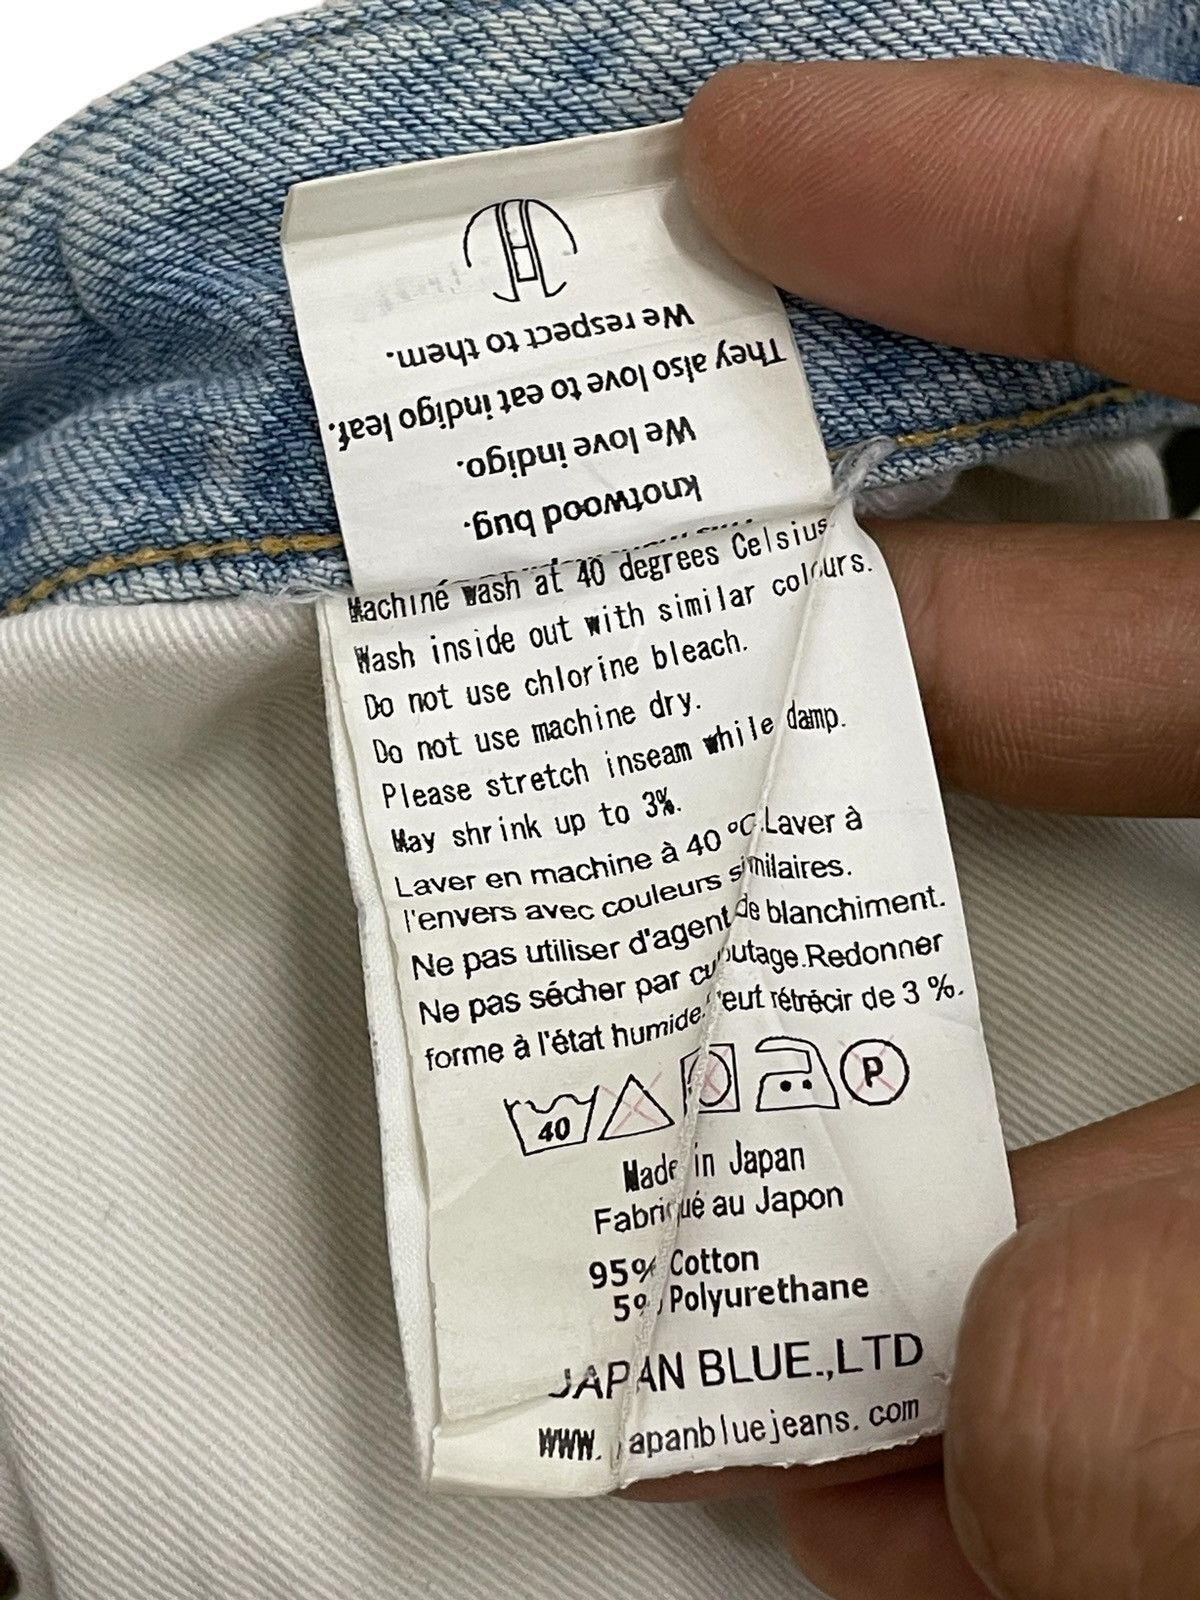 We respect to them.
They also love to eat indigo leaf.
We love indigo.
knotwood bug.
Machine wash at 40 degrees Celsius
Wash inside out with similar colours.
Do not use chlorine bleach.
Do not use machine dry.
Please stretch inseam while damp.
May shrink up to 3%.
Laver en machine à 40 °C.Laver à
l'envers avec couleurs similaires.
Ne pas utiliser d'agent de blanchiment.
Ne pas sécher par culbutage.Redonner
forme à l'état humide.Peut rétrécir de 3 %.
40 P
Made in Japan
Fabriqué au Japon
95% Cotton
5% Polyurethane
JAPAN BLUE.,LTD
www.japanbluejeans.com